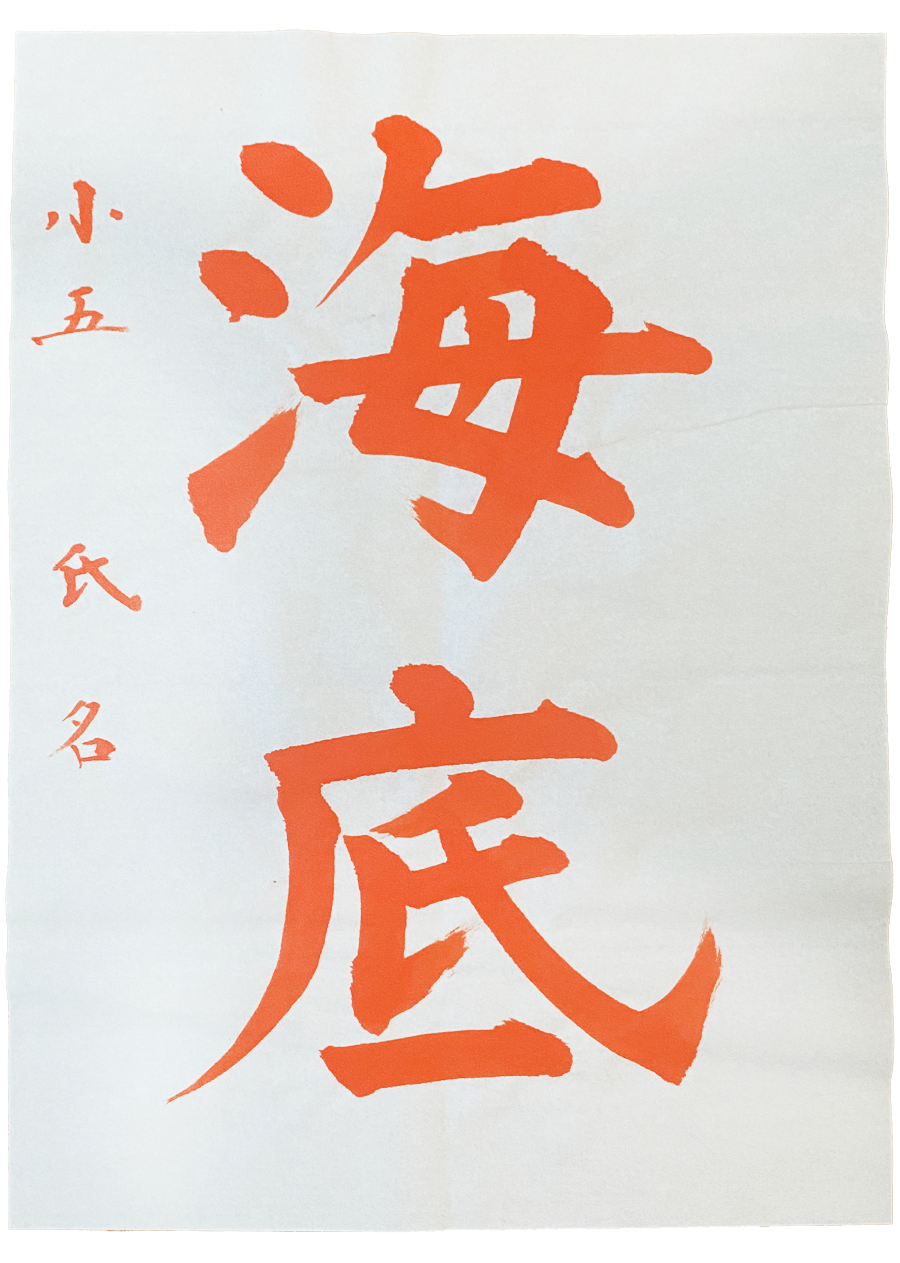 海底
小五 氏名